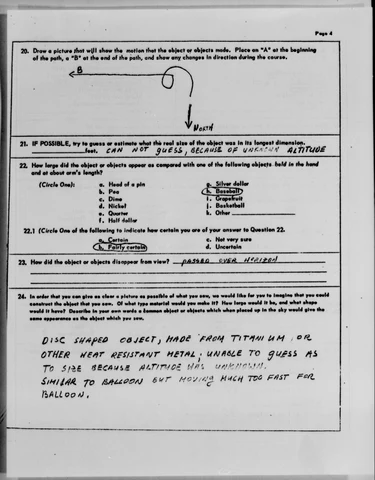 Page 4
20. Draw a picture that will show the motion that the object or objects made. Place an "A" at the beginning
of the path, a "B" at the end of the path, and show any changes in direction during the course.
B
NORTH
21. IF POSSIBLE, try to guess or estimate what the real size of the object was in its longest dimension.
feet. CAN NOT GUESS, BECAUSE OF UNKNOWN ALTITUDE
22. How large did the object or objects appear as compared with one of the following objects held in the hand
and at about arm's length?
(Circle One): a. Head of a pin g. Silver dollar
b. Pea h. Baseball
c. Dime i. Grapefruit
d. Nickel j. Basketball
e. Quarter k. Other
f. Half dollar
22.1 (Circle One of the following to indicate how certain you are of your answer to Question 22.
a. Certain c. Not very sure
b. Fairly certain d. Uncertain
23. How did the object or objects disappear from view? PASSED OVER HORIZON
24. In order that you can give as clear a picture as possible of what you saw, we would like for you to imagine that you could
construct the object that you saw. Of what type material would you make it? How large would it be, and what shape
would it have? Describe in your own words a common object or objects which when placed up in the sky would give the
same appearance as the object which you saw.
DISC SHAPED OBJECT, MADE FROM TITANIUM OR
OTHER HEAT RESISTANT METAL; UNABLE TO GUESS AS
TO SIZE BECAUSE ALTITUDE WAS UNKNOWN.
SIMILAR TO BALLOON BUT MOVING MUCH TOO FAST FOR
BALLOON.